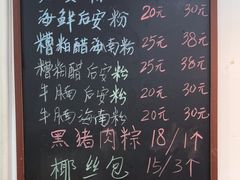 海鲜后安粉 20元 30元
糟粕醋海南粉 25元 38元
糟粕醋后安粉 25元 38元
牛腩后安粉 20元 30元
牛腩海南粉 20元 30元
黑猪肉粽 18/1个
椰丝包 15/3个